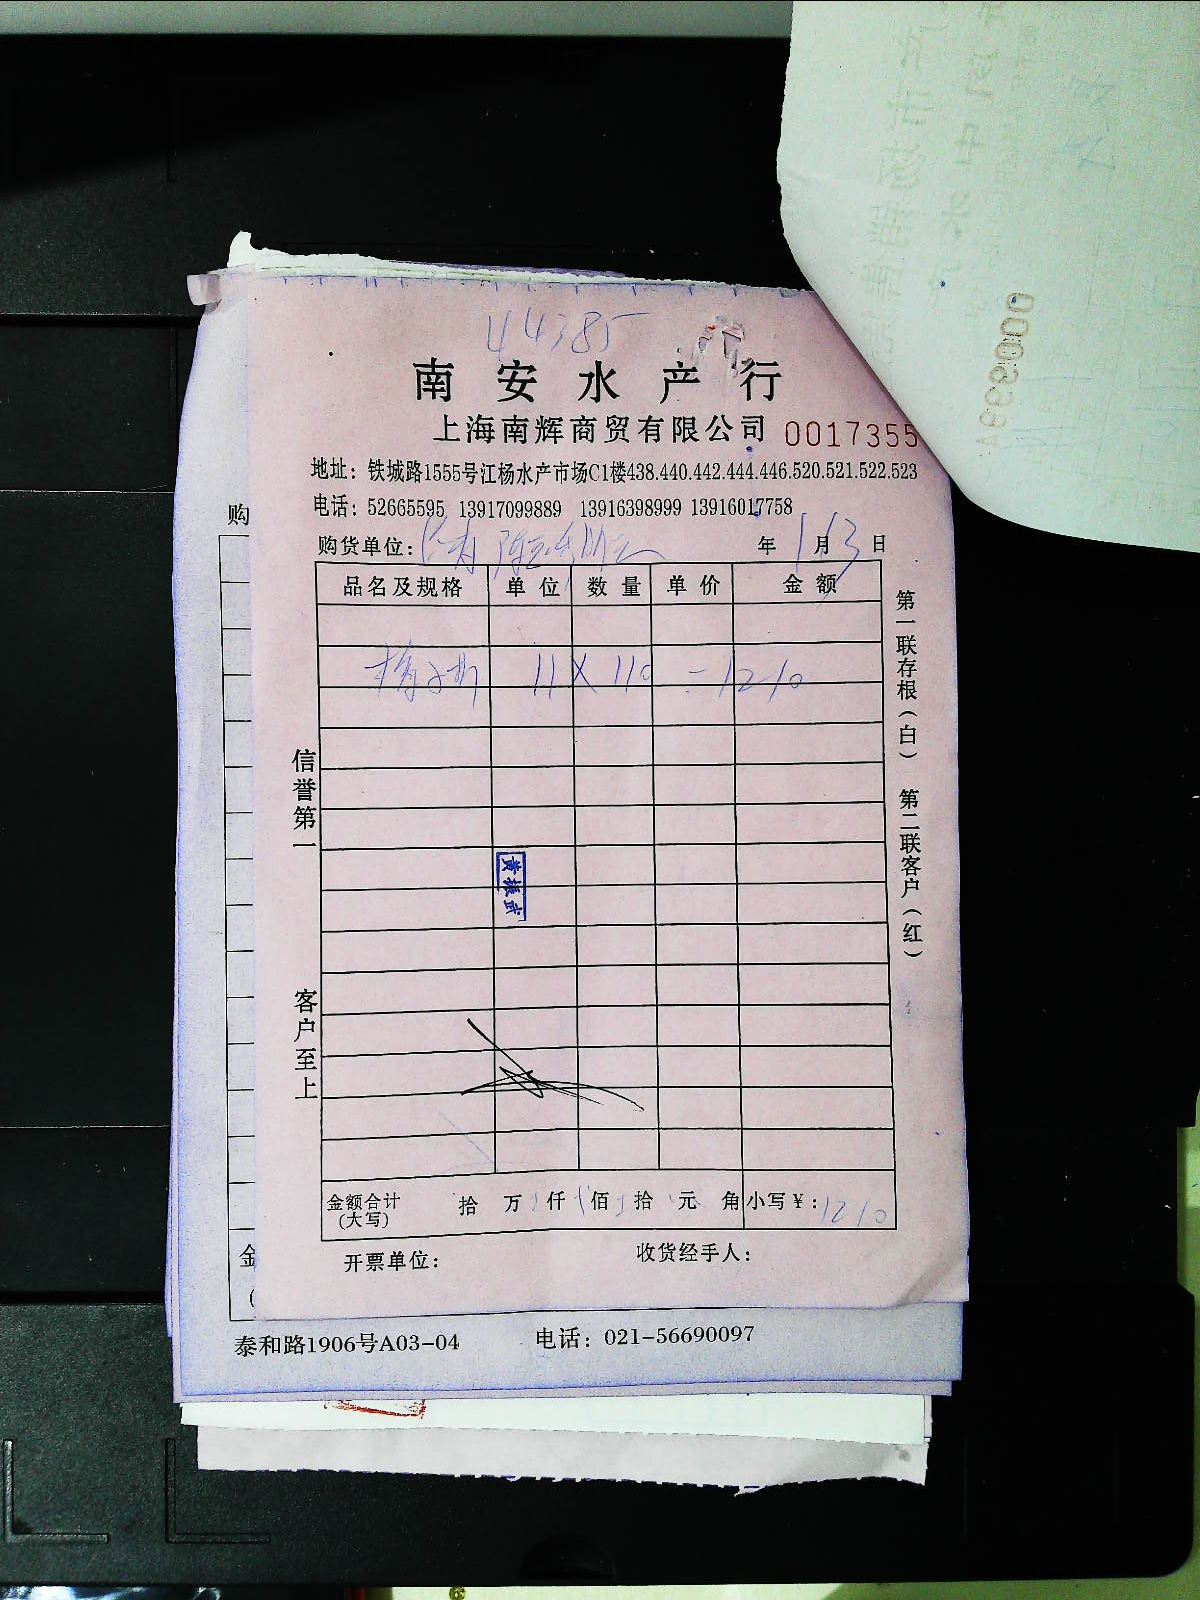 44385
南安水产行
上海南辉商贸有限公司 0017355
地址：铁城路1555号江杨水产市场C1楼438.440.442.444.446.520.521.522.523
电话：52665595 13917099889 13916398999 13916017758
购货单位： 年 1月13日
品名及规格 单位 数量 单价 金额
11 X 110 = 1210
信誉第一
客户至上
第一联存根（白） 第二联客户（红）
金额合计 拾 万 仟 佰 拾 元 角 小写￥：1210
（大写）
开票单位： 收货经手人：
购
金
泰和路1906号A03-04 电话：021-56690097